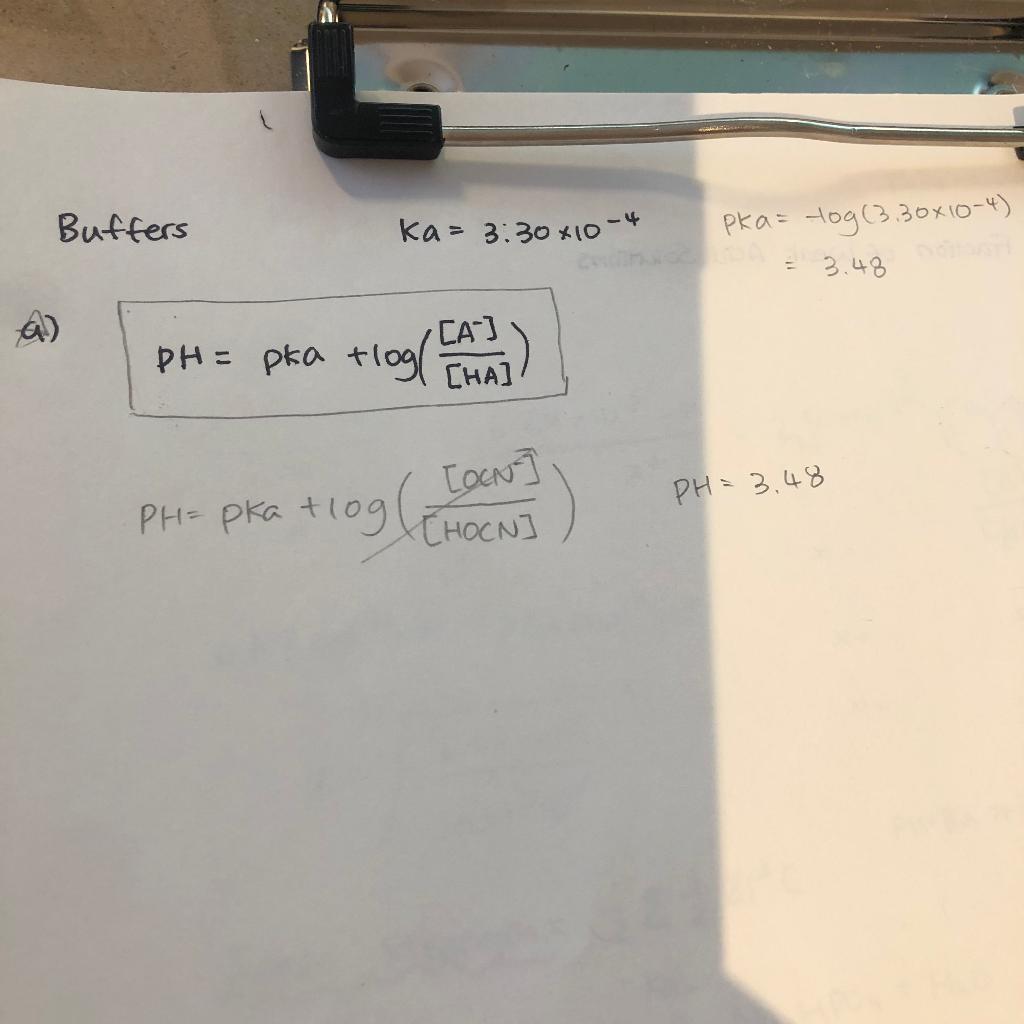 Buffers Ka = 3.30 x10⁻⁴ pKa = -log(3.30x10-4)
= 3.48
a) PH = pKa + log([A⁻]/[HA])
PH= pKa + log([OCN⁻]/[HOCN]) PH = 3.48